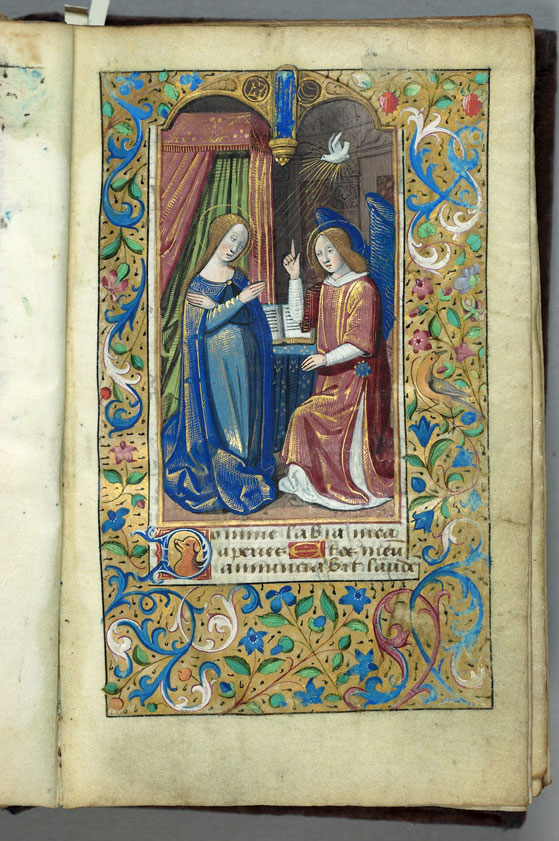 Domine labia mea
aperies Et os meu
annunciabit laude